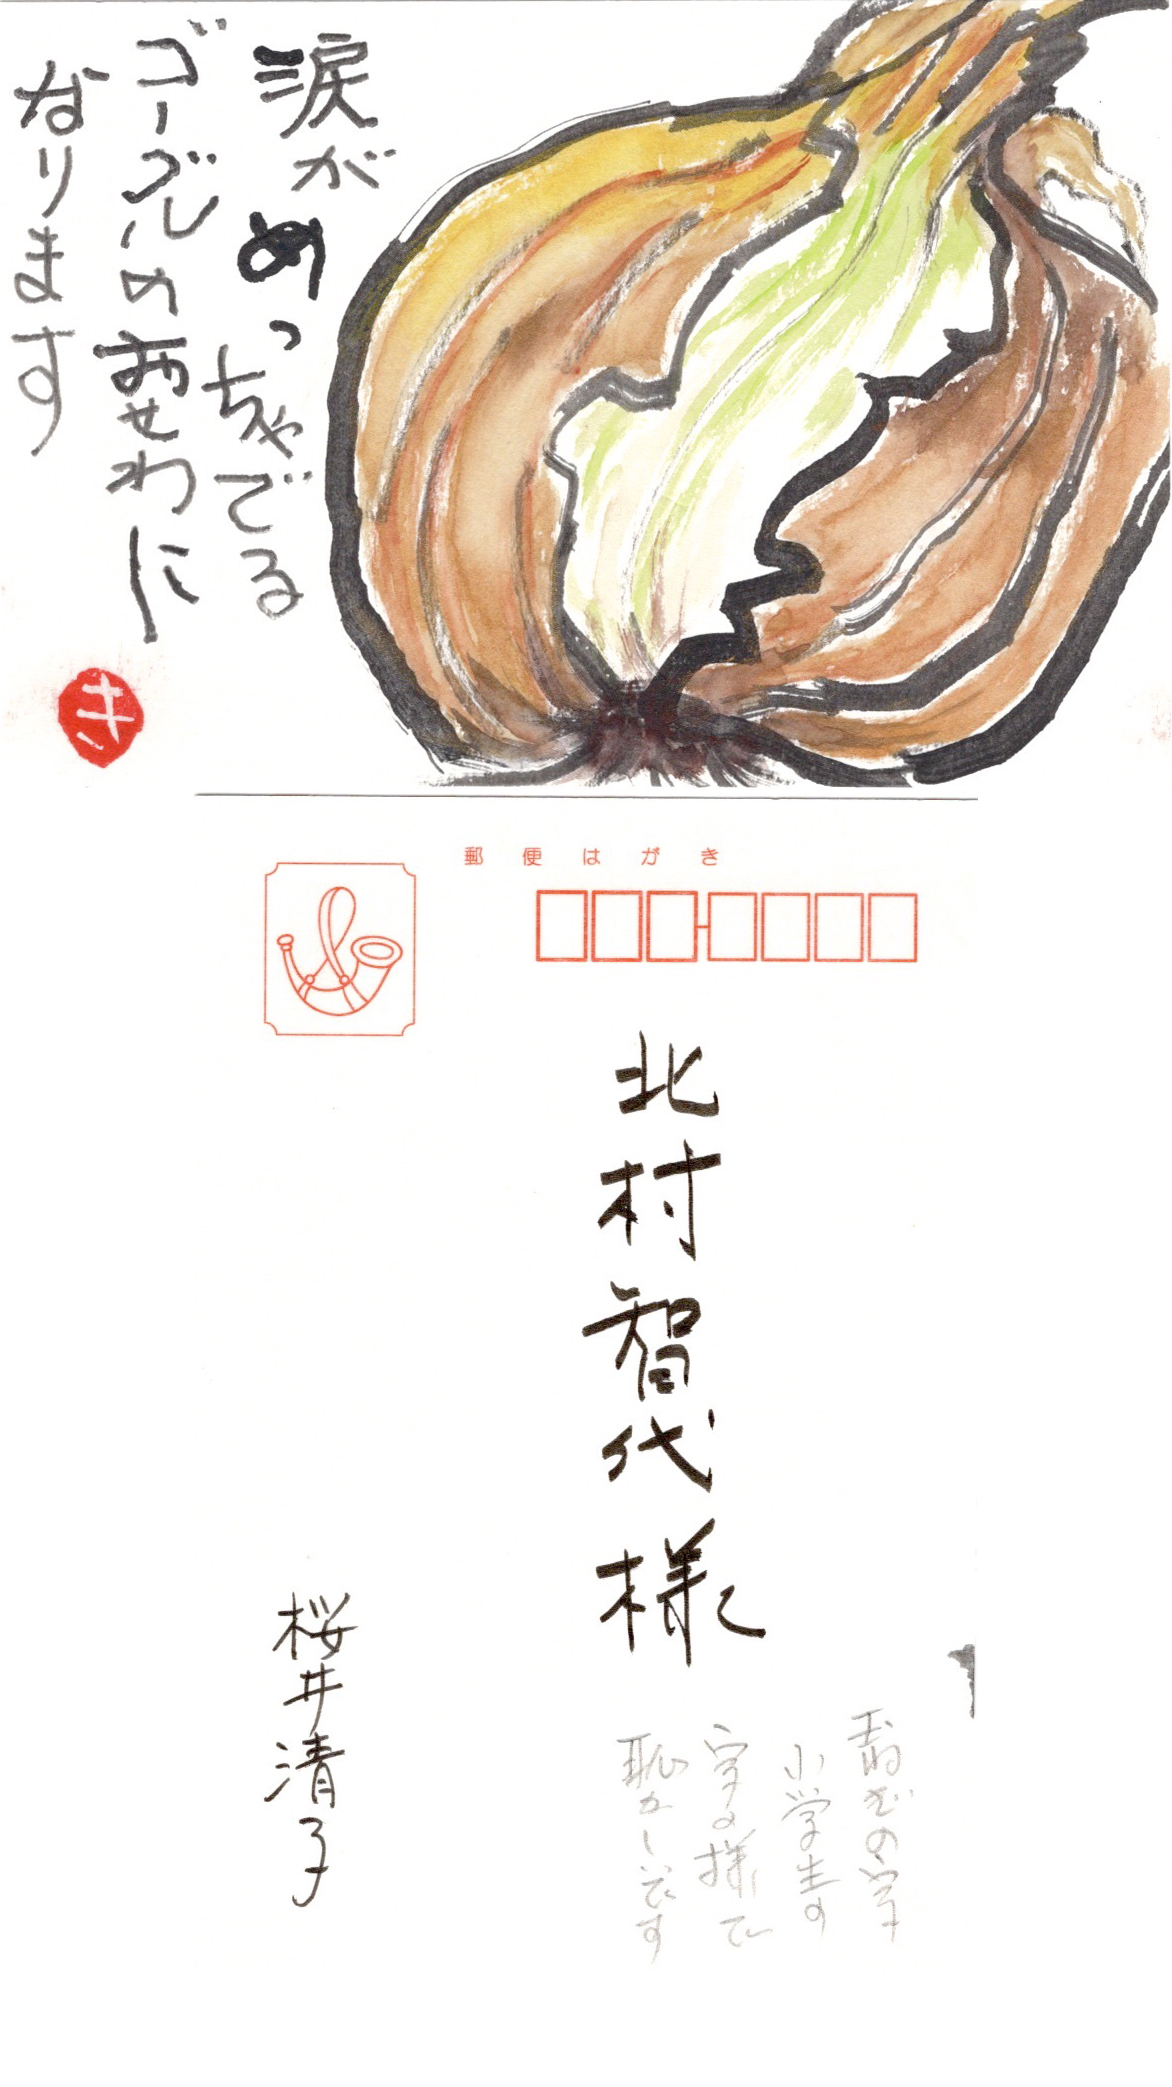 涙がめっちゃでる
ゴーグルのおせわに
なります
き
郵便はがき
北村智代様
桜井清子
小学生の
字の様で
恥かしいです